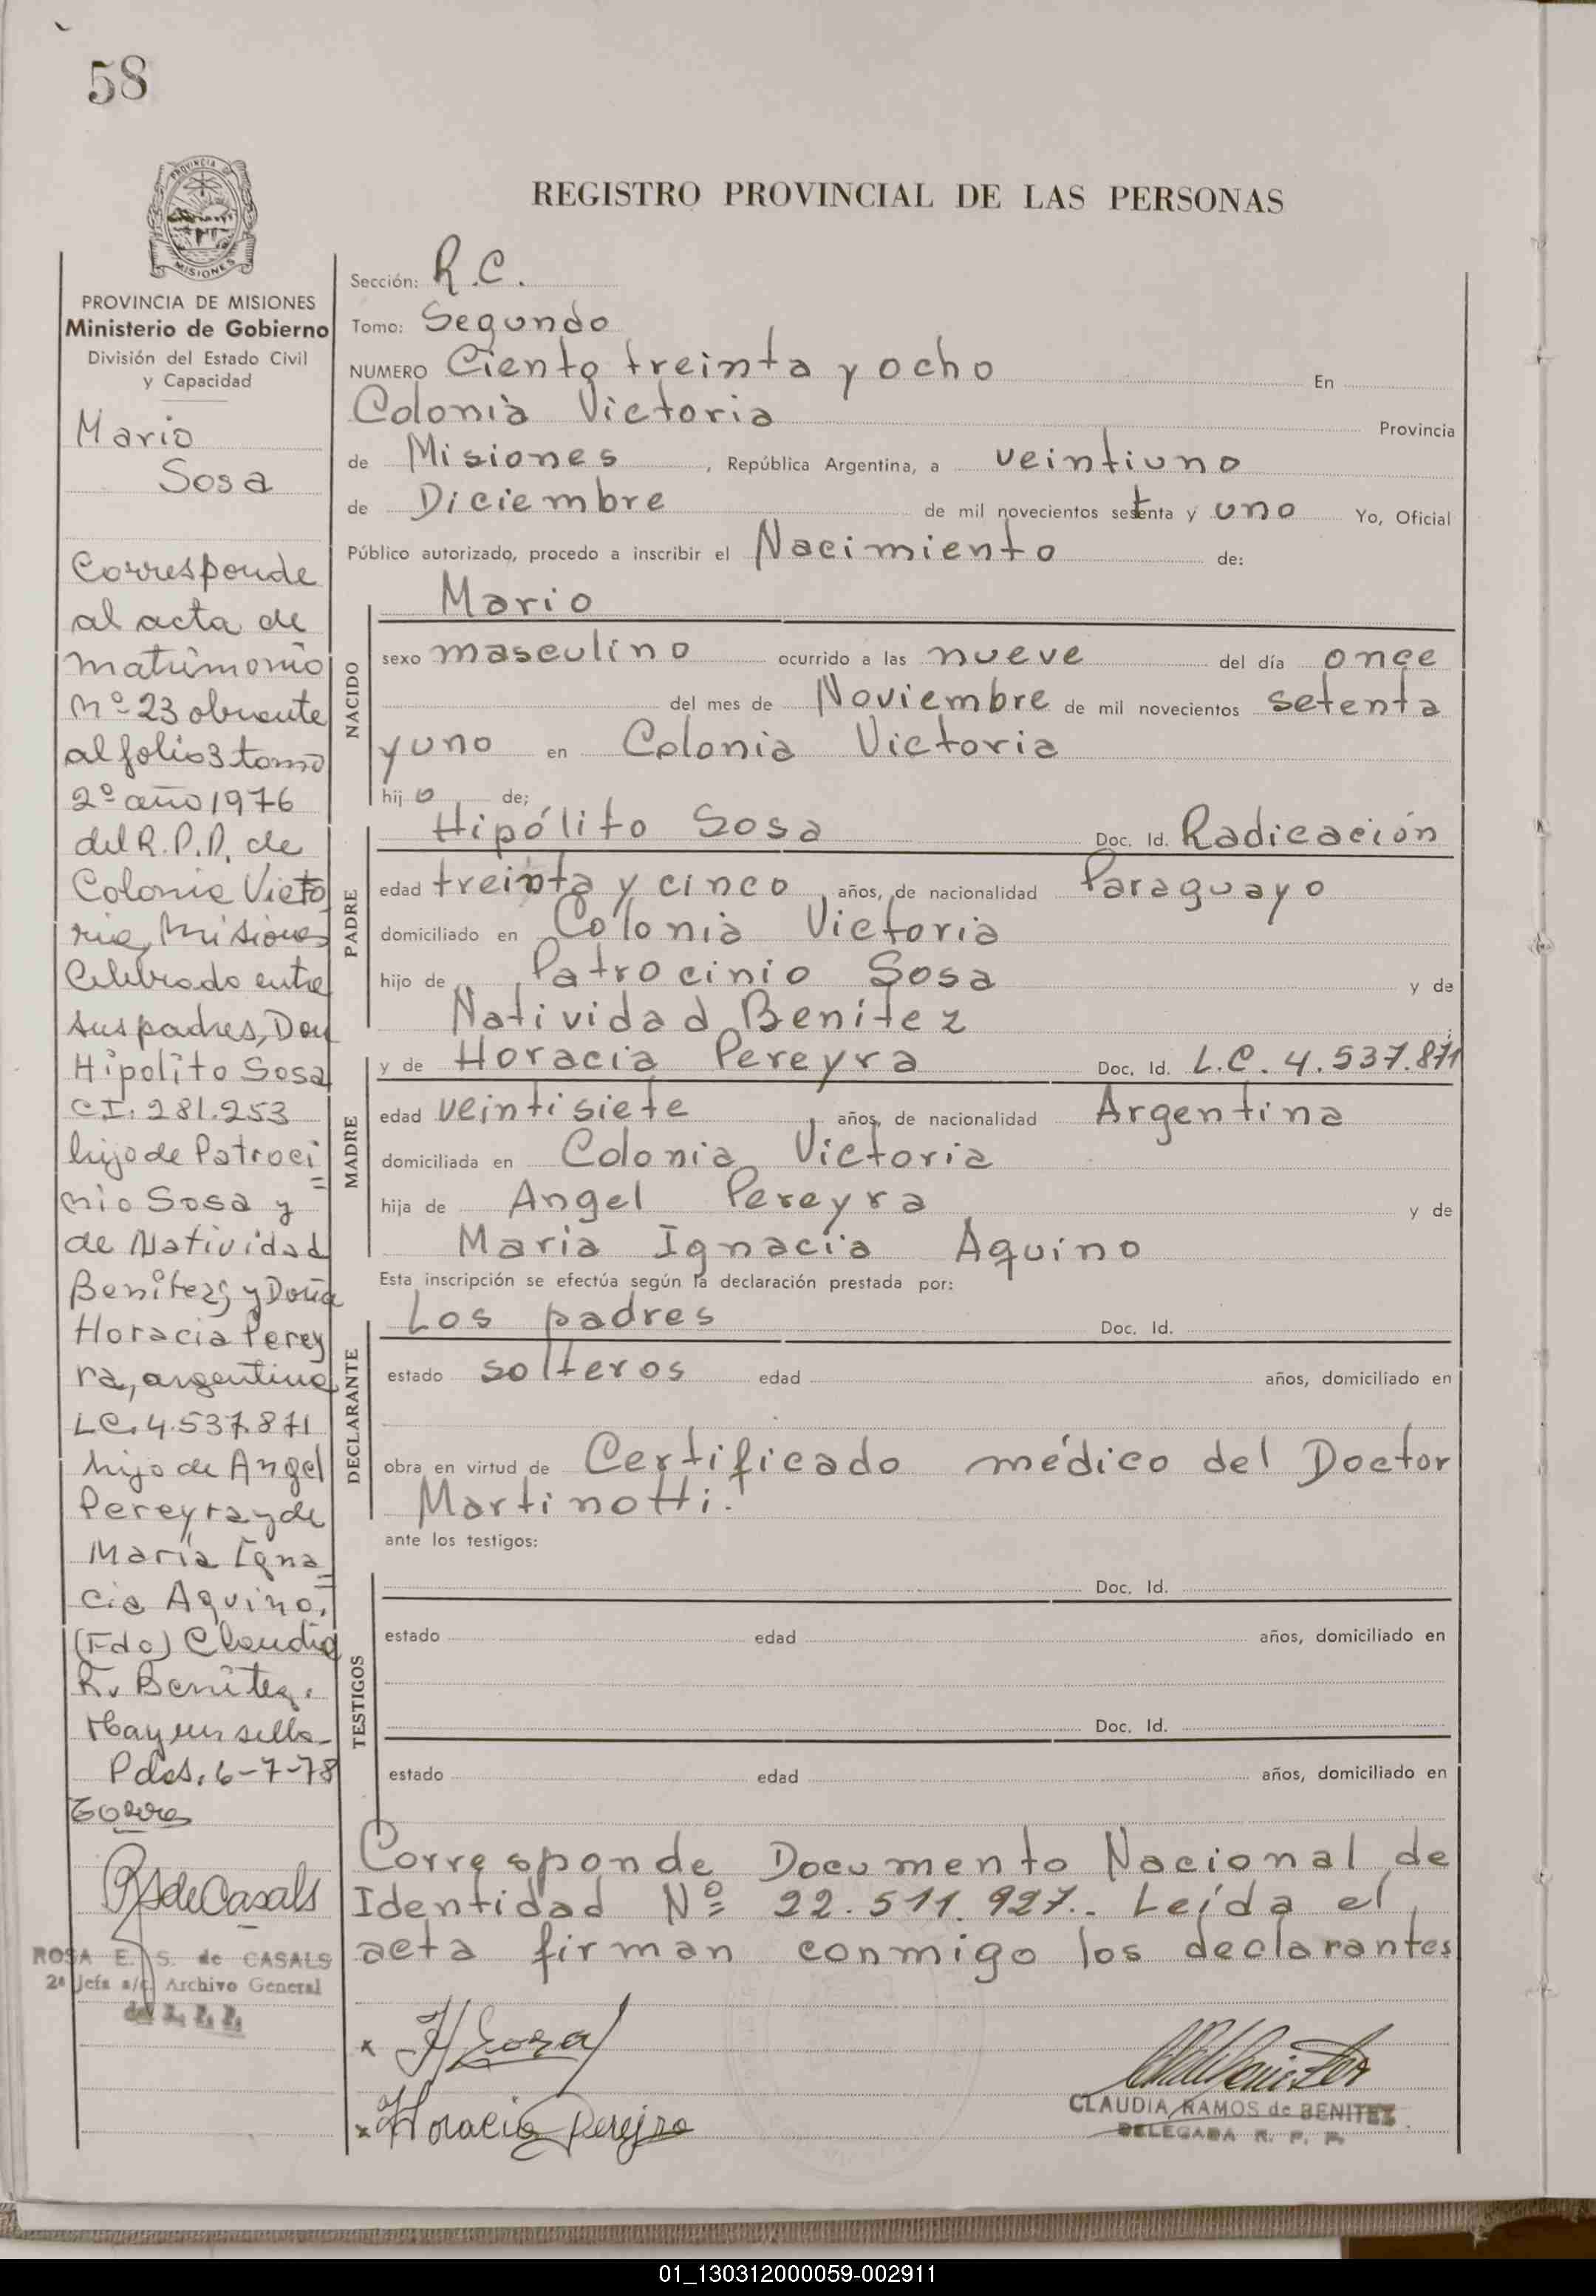 58
PROVINCIA DE
MISIONES
REGISTRO PROVINCIAL DE LAS PERSONAS
PROVINCIA DE MISIONES
Ministerio de Gobierno
División del Estado Civil
y Capacidad
Mario
Sosa
Corresponde
al acta de
matrimonio
Nº 23 obrante
al folio 3 tomo
2º año 1976
del R.P.P. de
Colonia Victo
ria, Misiones
Celebrado entre
sus padres, Don
Hipolito Sosa
CI. 281.253
hijo de Patroci=
nio Sosa y
de Natividad
Benítez; y Doña
Horacia Perey
ra, argentina
LC. 4.537.871
hija de Angel
Pereyra y de
María Igna=
cia Aquino.
(Fdo) Claudia
R. Benitez.
Hay un sello-
Pdas. 6-7-78
RSdeCasals
ROSA E. S. de CASALS
2ª Jefa a/c. Archivo General
del R. P. P.
Sección: R.C.
Tomo: Segundo
NUMERO Ciento treinta y ocho En
Colonia Victoria Provincia
de Misiones , República Argentina, a veintiuno
de Diciembre de mil novecientos setenta y uno Yo, Oficial
Público autorizado, procedo a inscribir el Nacimiento de:
NACIDO
Mario
sexo masculino ocurrido a las nueve del día once
del mes de Noviembre de mil novecientos setenta
y uno en Colonia Victoria
hijo de;
PADRE
Hipólito Sosa Doc. Id. Radicación
edad treinta y cinco , años, de nacionalidad Paraguayo
domiciliado en Colonia Victoria
hijo de Patrocinio Sosa y de
Natividad Benítez ;
MADRE
y de Horacia Pereyra Doc. Id. L.C. 4.537.871
edad veintisiete , años, de nacionalidad Argentina
domiciliada en Colonia Victoria
hija de Angel Pereyra y de
Maria Ignacia Aquino
Esta inscripción se efectúa según la declaración prestada por:
DECLARANTE
Los padres Doc. Id.
estado solteros edad años, domiciliado en
obra en virtud de Certificado médico del Doctor
Martinotti.
ante los testigos:
TESTIGOS
Doc. Id.
estado edad años, domiciliado en
Doc. Id.
estado edad años, domiciliado en
Corresponde Documento Nacional de
Identidad Nº 22.511.927.. Leída el
acta firman conmigo los declarantes
x H Sosa
x Horacia Pereyra
CLAUDIA RAMOS de BENITEZ
DELEGADA R. P. P.
01_130312000059-002911